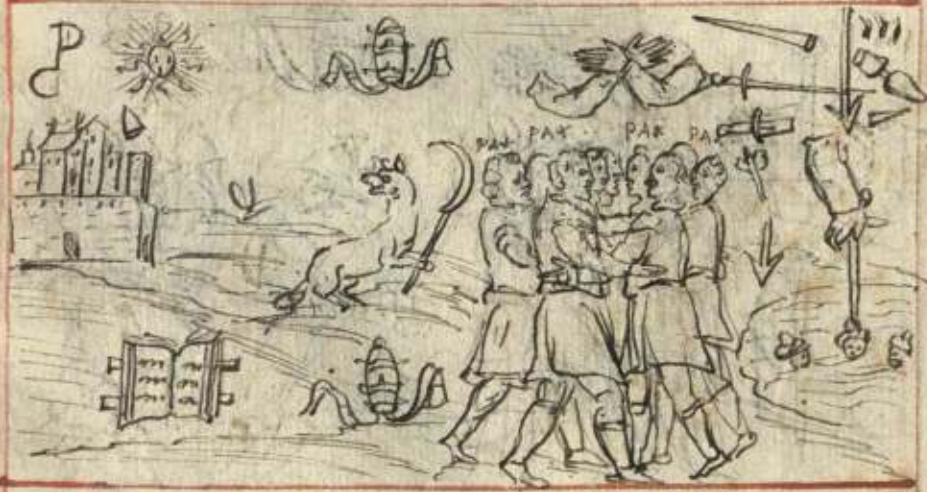 PAX PAX PAX PA